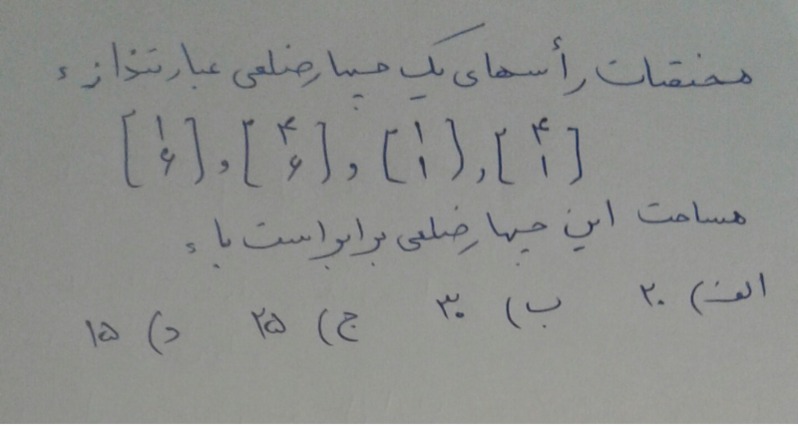 مختصات رأسهای یک چهارضلعی عبارتنداز:
[۴ ۱] , [۱ ۱] , [۴ ۶] , [۱ ۶]
مساحت این چهارضلعی برابراست با:
الف) ۲۰ ب) ۳۰ ج) ۲۵ د) ۱۵